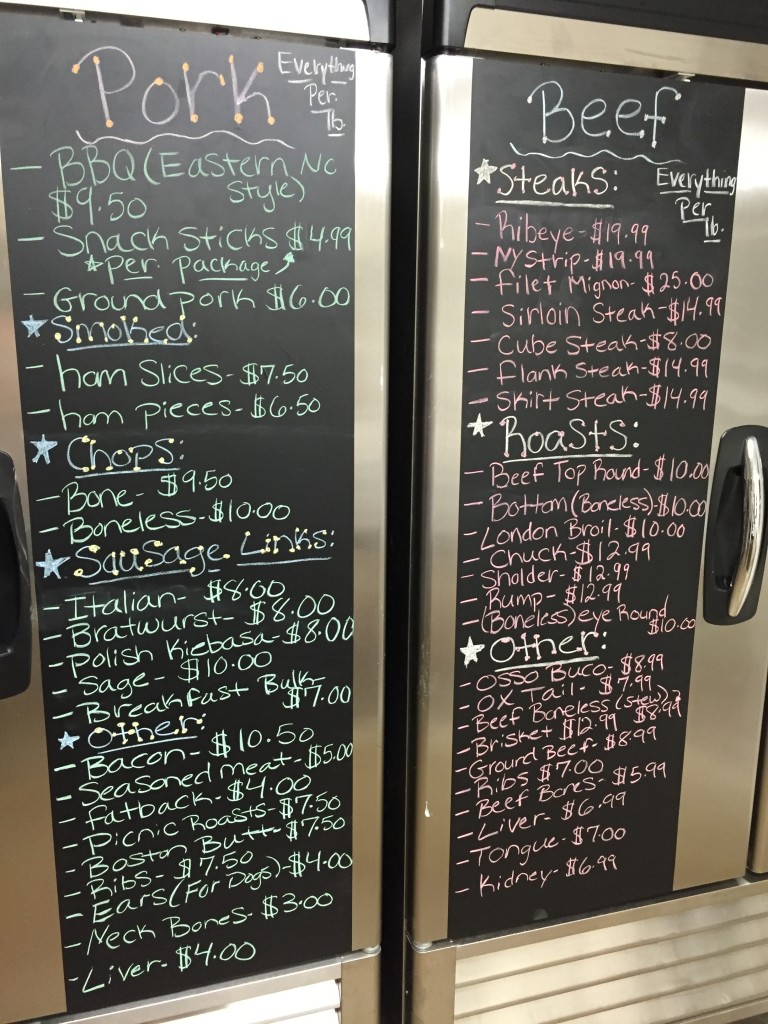 Pork
Everything
Per
lb.
- BBQ (Eastern NC
Style)
$9.50
- Snack Sticks $4.99
*Per Package
- Ground pork $6.00
Smoked:
- ham Slices- $7.50
- ham pieces- $6.50
Chops:
- Bone- $9.50
- Boneless- $10.00
Sausage Links:
- Italian- $8.00
- Bratwurst- $8.00
- Polish Kiebasa- $8.00
- Sage- $10.00
- Breakfast Bulk
$7.00
Other:
- Bacon- $10.50
- Seasoned meat- $5.00
- Fatback- $4.00
- Picnic Roasts- $7.50
- Boston Butt- $7.50
- Ribs- $7.50
- Ears (For Dogs)- $4.00
- Neck Bones- $3.00
- Liver- $4.00
Beef
Steaks:
Everything
Per
lb.
- Ribeye- $19.99
- NY Strip- $19.99
- Filet Mignon- $25.00
- Sirloin Steak- $14.99
- Cube Steak- $8.00
- Flank Steak- $14.99
- Skirt Steak- $14.99
Roasts:
- Beef Top Round- $10.00
- Bottom (Boneless)- $10.00
- London Broil- $10.00
- Chuck- $12.99
- Sholder- $12.99
- Rump- $12.99
- (Boneless) eye Round
$10.00
Other:
- Osso Buco- $8.99
- Ox Tail- $7.99
- Beef Boneless (Stew)
$8.99
- Brisket $12.99
- Ground Beef- $8.99
- Ribs $7.00
- Beef Bones- $5.99
- Liver- $6.99
- Tongue- $7.00
- Kidney- $6.99